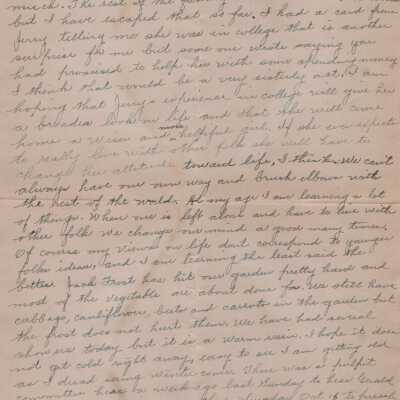 much. The rest of the family
but I have escaped that so far. I had a card from
Jerry telling me she was in college that is another
surprise for me but some one wrote saying you
had promised to help her with some spending money
I think that would be a very sisterly act. I am
hoping that Jerry's experience in college will give her
a broader look on life and that she will come
home a wiser and more helpful girl. If she ever expects
to really live with other folk she will have to
change her attitude toward life, I think. We can't
always have our own way and brush elbows with
the rest of the world. At my age I am learning a lot
of things. When one is left alone and have to live with
other folk we change our mind a good many times.
Of course my views on life dont correspond to younger
folks ideas, and I am learning the least said the
better. Jack Frost has hit our garden pretty hard and
most of the vegetable are about done for. We still have
cabbage, cauliflower, beets and carrots in the garden but
the frost does not hurt them. We have had several
showers today but it is a warm rain. I hope it does
not get cold right away, easy to see I am getting old
as I dread seeing winter come. There was a pulpit
committee here a week ago last Sunday to hear Gerald
Oct 16 to preach